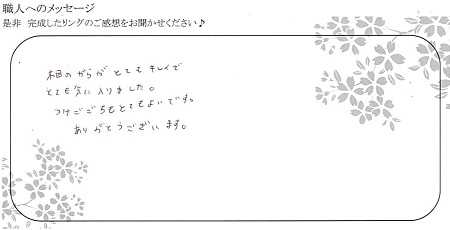 職人へのメッセージ
是非 完成したリングのご感想をお聞かせください♪
木目のがらが とても キレイで
とても気に入りました。
つけごこちもとてもよいです。
ありがとうございます。